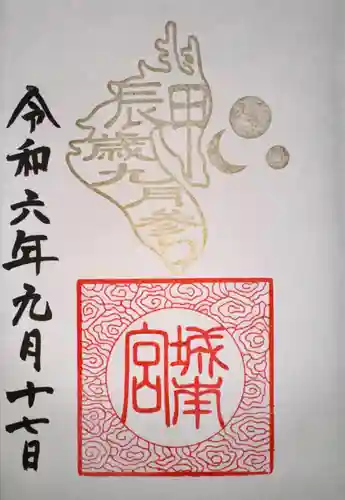 甲辰歳九月参り
城南宮
令和六年九月十七日